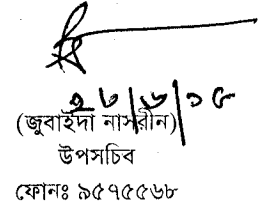 ২৮/৬/১৫
(জুবাইদা নাসরীন)
উপসচিব
ফোনঃ ৯৫৭৫৫৬৮